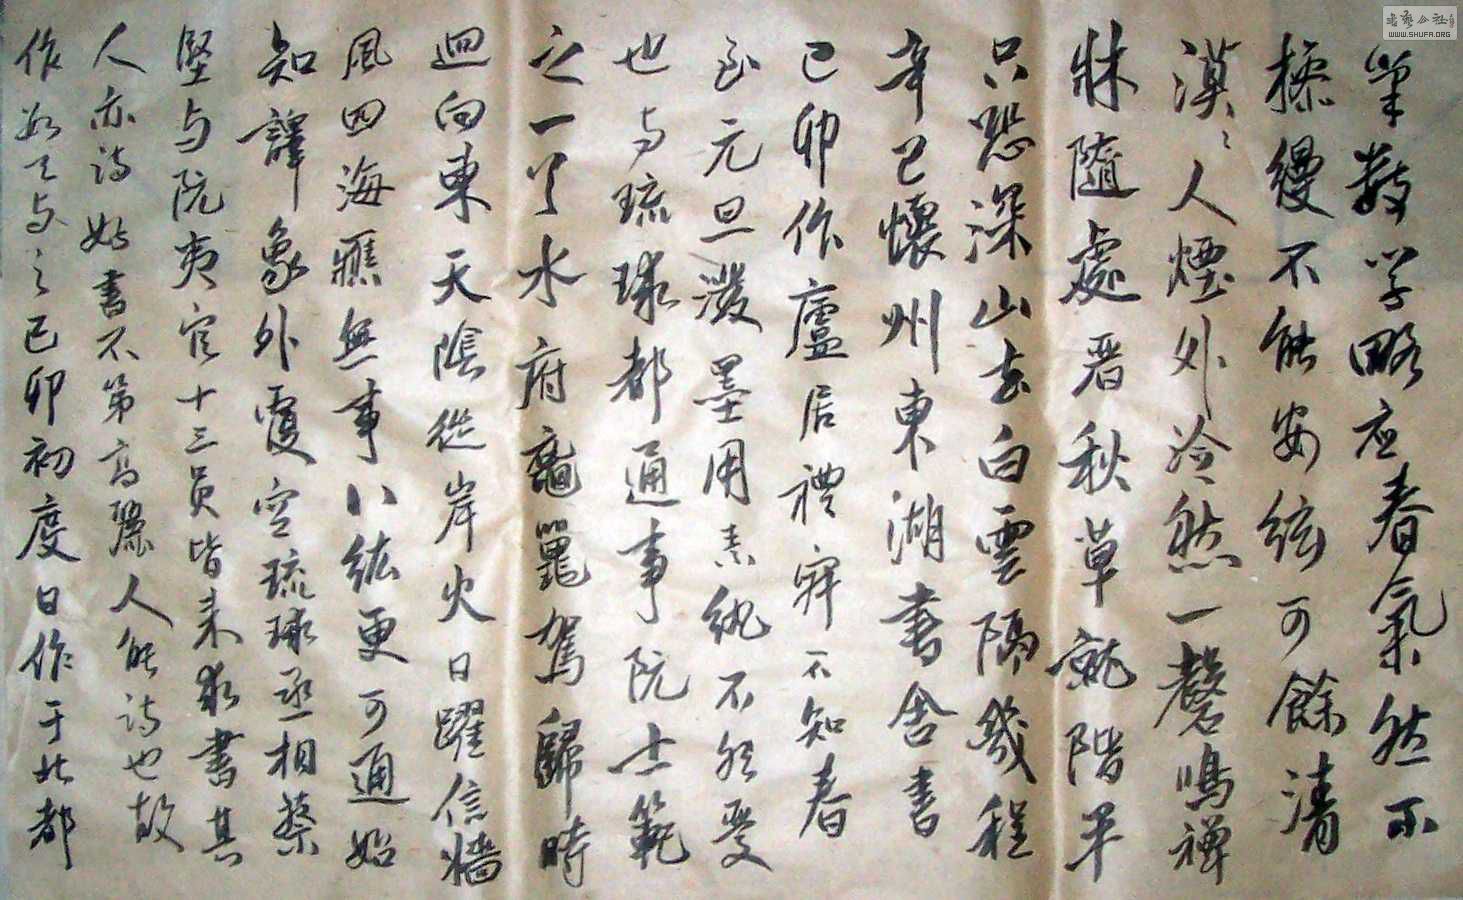 筆數學略應春氣然不
操縵不能安絃可餘清
漠〻人煙外冷然一磬鳴禅
牀隨處吾秋草就階平
只恐深山去白雲隔幾程
辛巳懷州東湖書舍書
己卯作廬居禮寂不知春
色元旦潑墨用素紈不能受
也与琉球都通事阮士範
之一〻水府黿鼉駕歸時
迴向東天陰從岸火日躍信牆
風四海應無事八紘更可通始
知譯象外覆空琉球丞相蔡
堅与阮夷官十三員皆來求書其
人亦詩好書不第高麗人能詩也故
作如〻与之己卯初度日作于北都
書藝公社
WWW.SHUFA.ORG